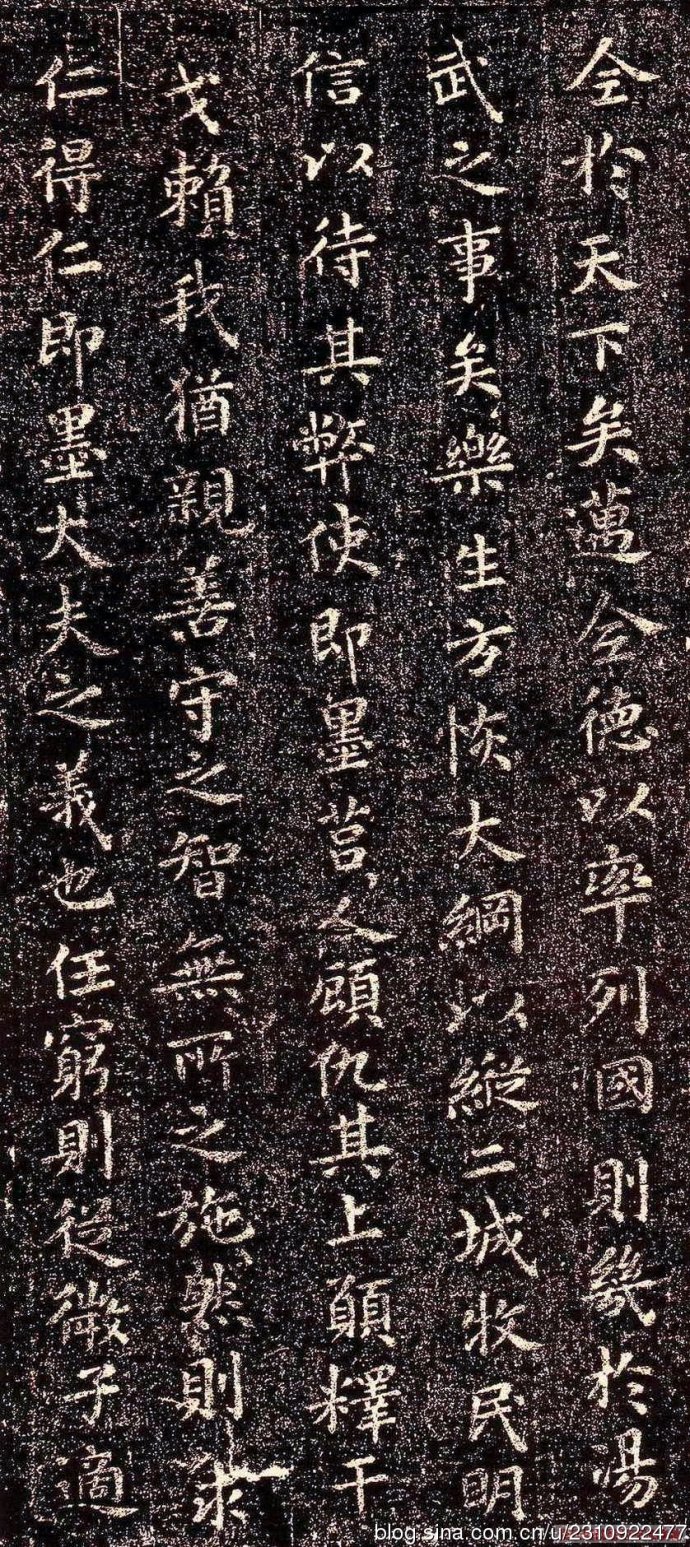 全於天下矣邁全德以率列國則幾於湯
武之事矣樂生方恢大綱以縱二城收民明
信以待其弊使即墨莒人顧仇其上願釋干
戈賴我猶親善守之智無所之施然則求
仁得仁即墨大夫之義也任窮則從微子適
blog.sina.com.cn/u/2310922477